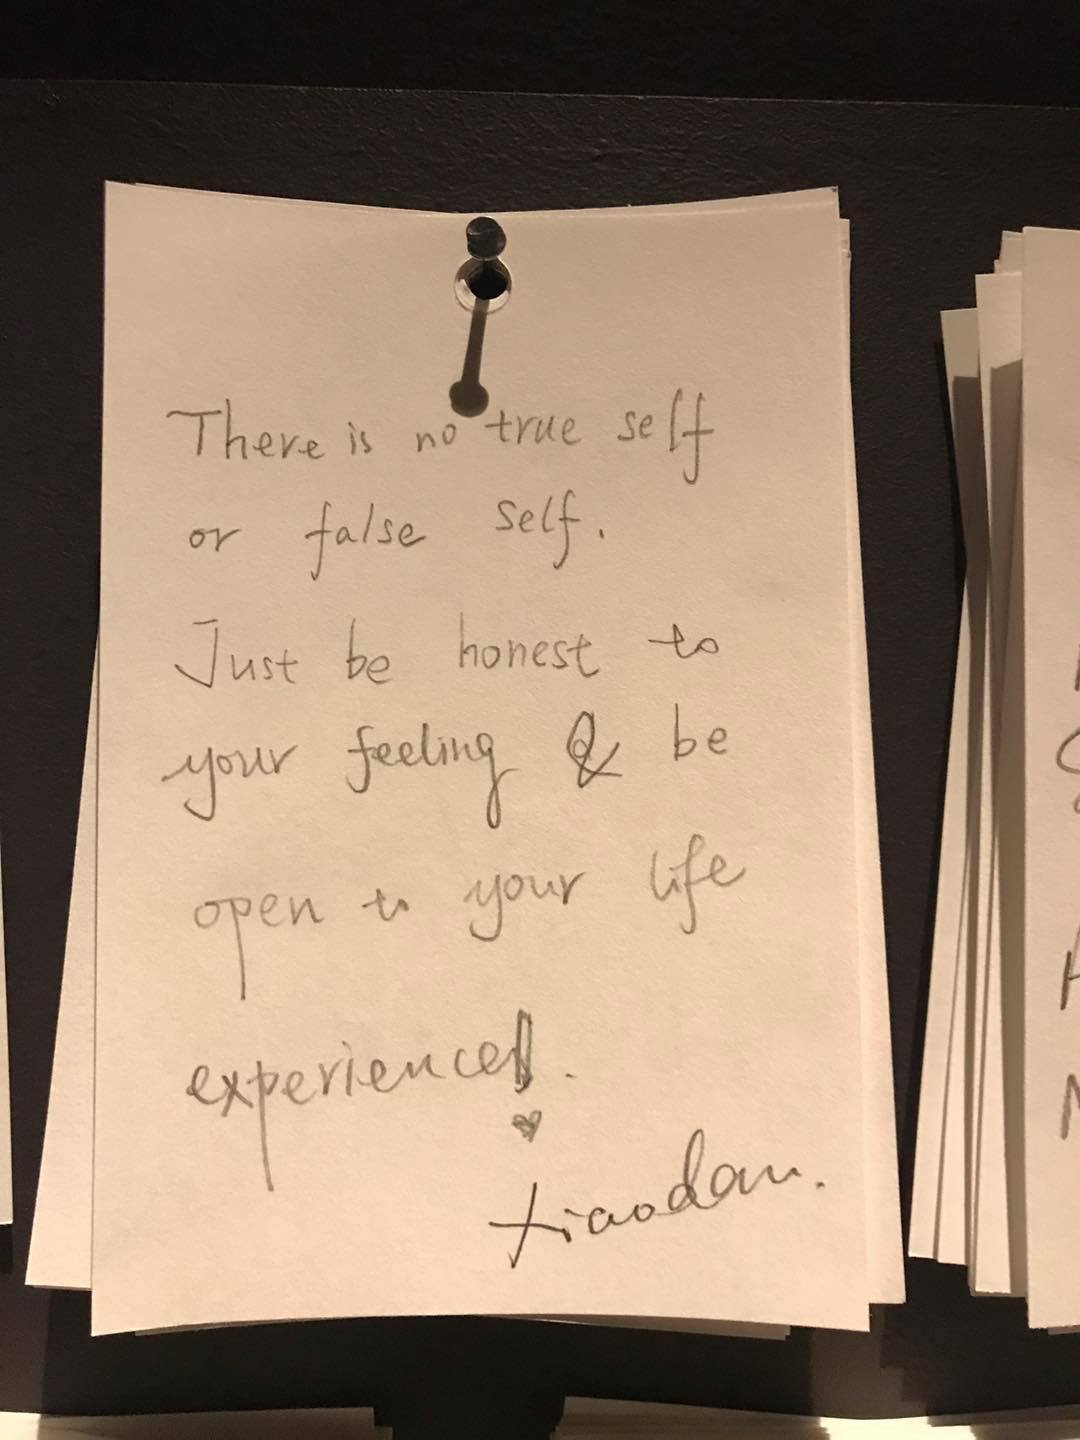 There is no true self
or false self.
Just be honest to
your feeling & be
open to your life
experience!.
Xiaodan.